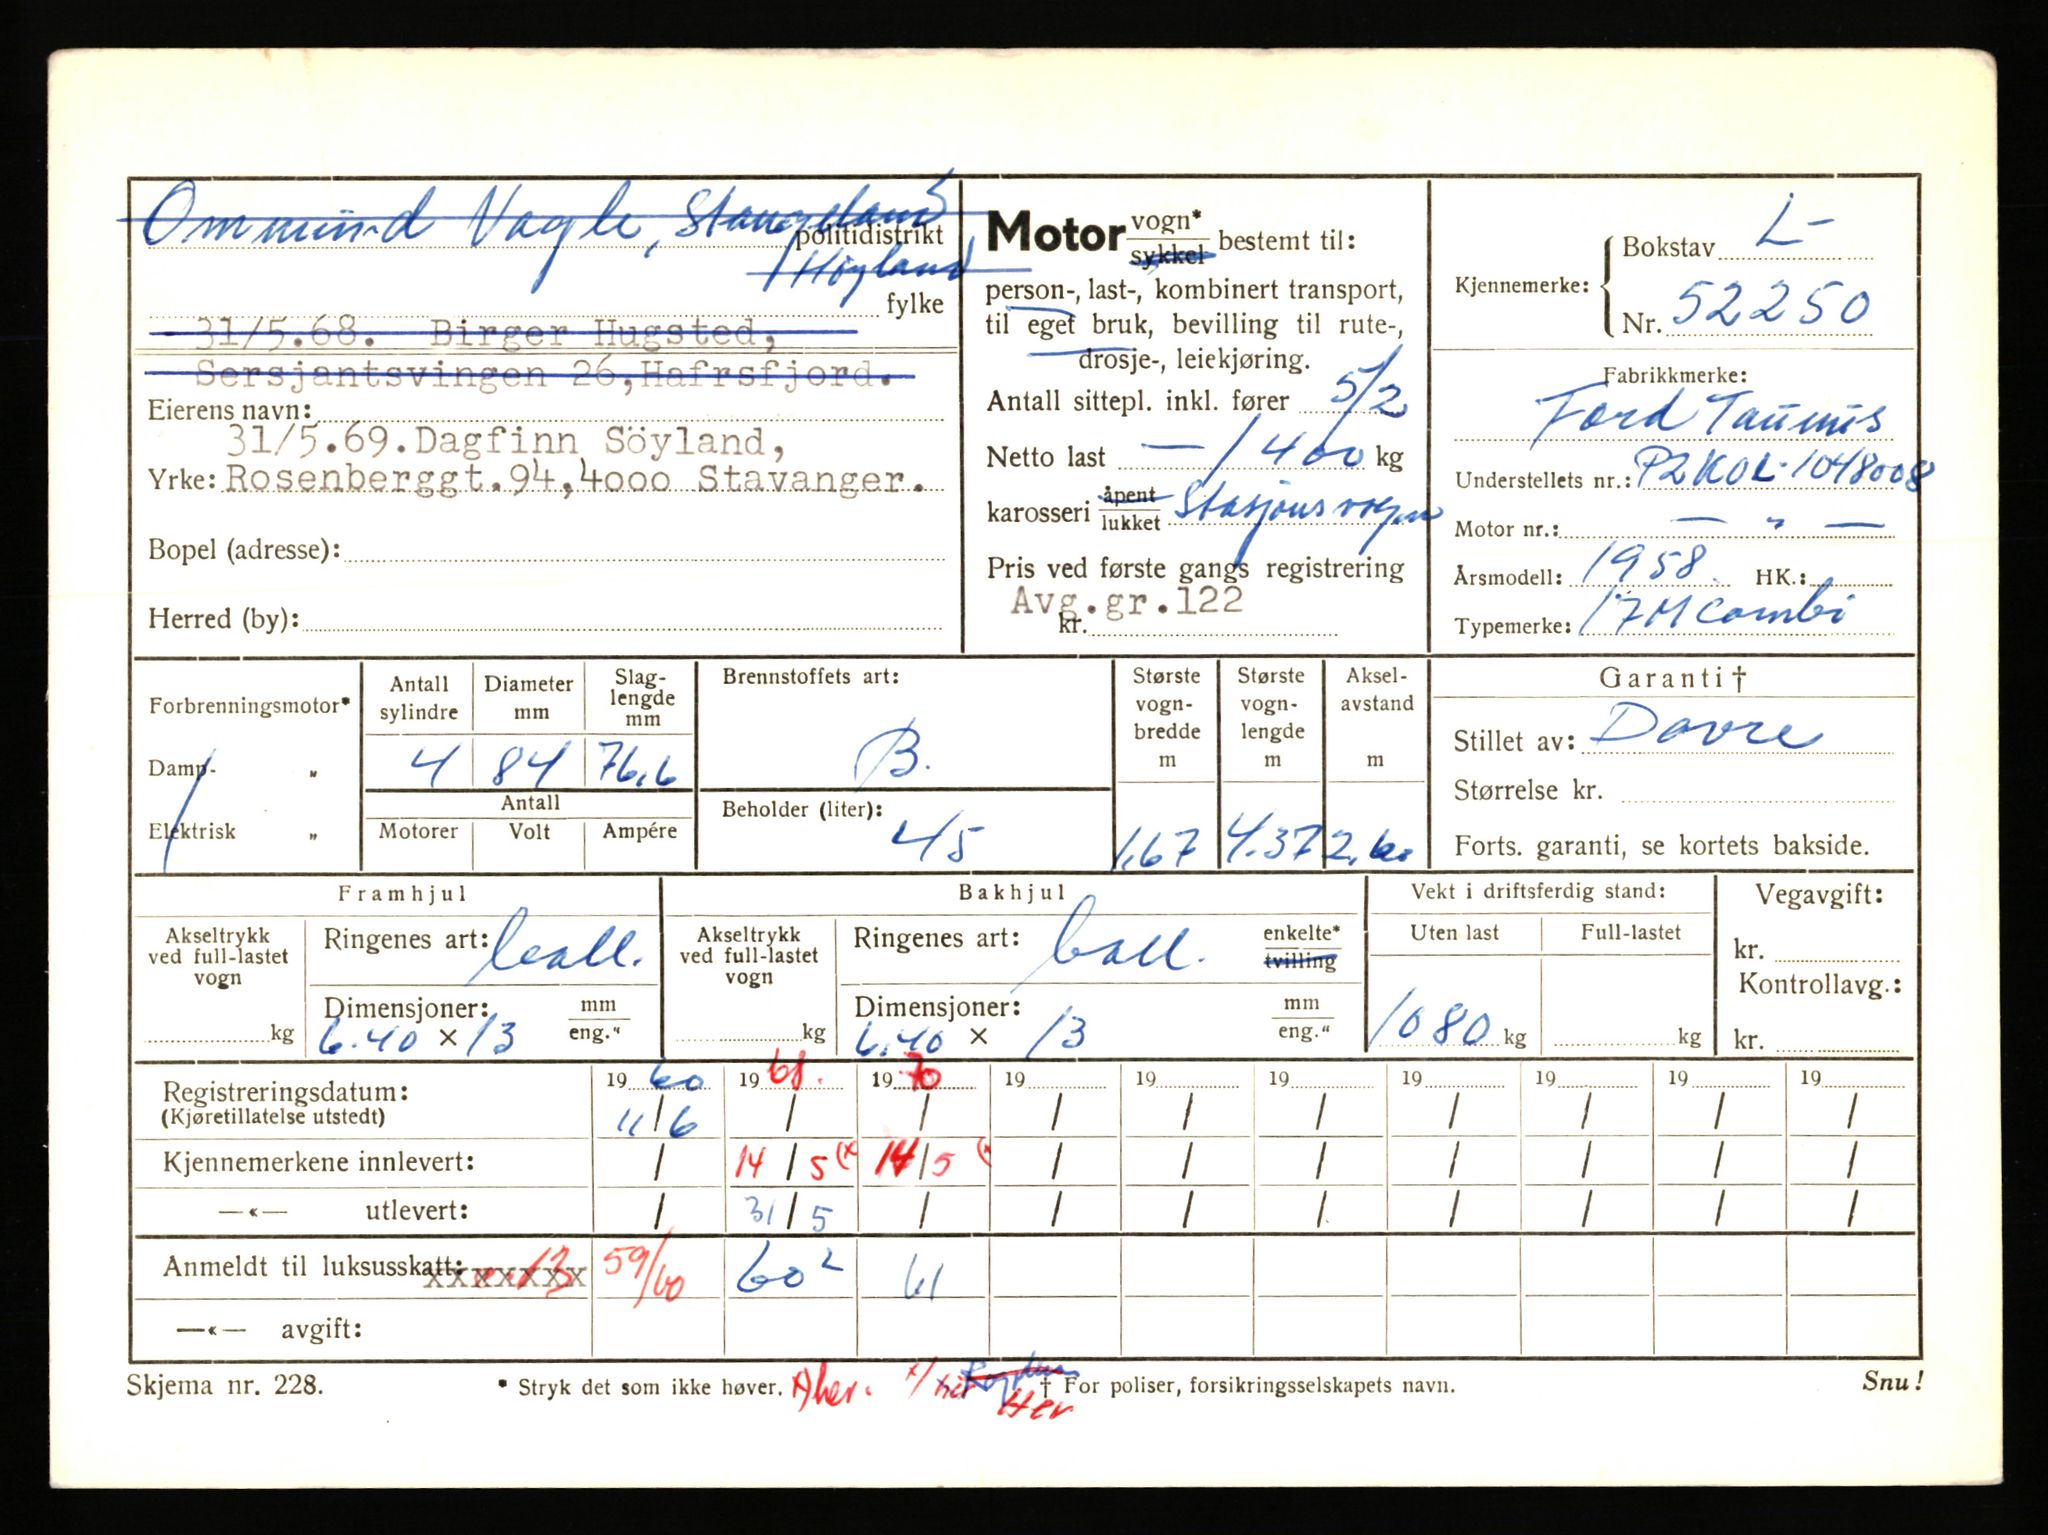 Ommund Vagle, Stangeland
politidistrikt
Høyland
fylke
31/5.68. Birger Hugsted,
Sersjantsvingen 26, Hafrsfjord.
Eierens navn:
31/5.69. Dagfinn Söyland,
Yrke: Rosenberggt. 94, 4000 Stavanger.
Bopel (adresse):
Herred (by):
Motor vogn* sykkel bestemt til:
person-, last-, kombinert transport,
til eget bruk, bevilling til rute-,
drosje-, leiekjøring.
Antall sittepl. inkl. fører 5/2
Netto last — / 400 kg
karosseri åpent lukket Stasjonsvogn
Pris ved første gangs registrering
Avg.gr.122
kr.
Kjennemerke: Bokstav L-
Nr. 52250
Fabrikkmerke:
Ford Taunus
Understellets nr.: P2KOL-1048008
Motor nr.: — " —
Årsmodell: 1958. HK.:
Typemerke: 17M combi
Forbrenningsmotor*
Damp- "
Elektrisk "
Antall sylindre Diameter mm Slag-lengde mm
4 84 76,6
Antall
Motorer Volt Ampére
Brennstoffets art:
B.
Beholder (liter):
45
Største vogn-bredde m
1,67
Største vogn-lengde m
4.37
Aksel-avstand m
2,60
Garanti †
Stillet av: Dovre
Størrelse kr.
Forts. garanti, se kortets bakside.
Framhjul
Akseltrykk ved full-lastet vogn
kg
Ringenes art: ball.
Dimensjoner: mm eng."
6.40 × 13
Bakhjul
Akseltrykk ved full-lastet vogn
kg
Ringenes art: ball. enkelte* tvilling
Dimensjoner: mm eng."
6.40 × 13
Vekt i driftsferdig stand:
Uten last Full-lastet
1080 kg kg
Vegavgift:
kr.
Kontrollavg.:
kr.
Registreringsdatum: 19 60 19 68. 19 70 19 19 19 19 19 19 19
(Kjøretillatelse utstedt) 11/6 / / / / / / / / /
Kjennemerkene innlevert: / 14/5 (x 14/5 (x / / / / / / /
—«— utlevert: / 31/5 / / / / / / / /
Anmeldt til luksusskatt: xxxxxxx 13 59/60 60² 61
—«— avgift:
Skjema nr. 228.
* Stryk det som ikke høver.
x/ her
Her
† For poliser, forsikringsselskapets navn.
Snu!